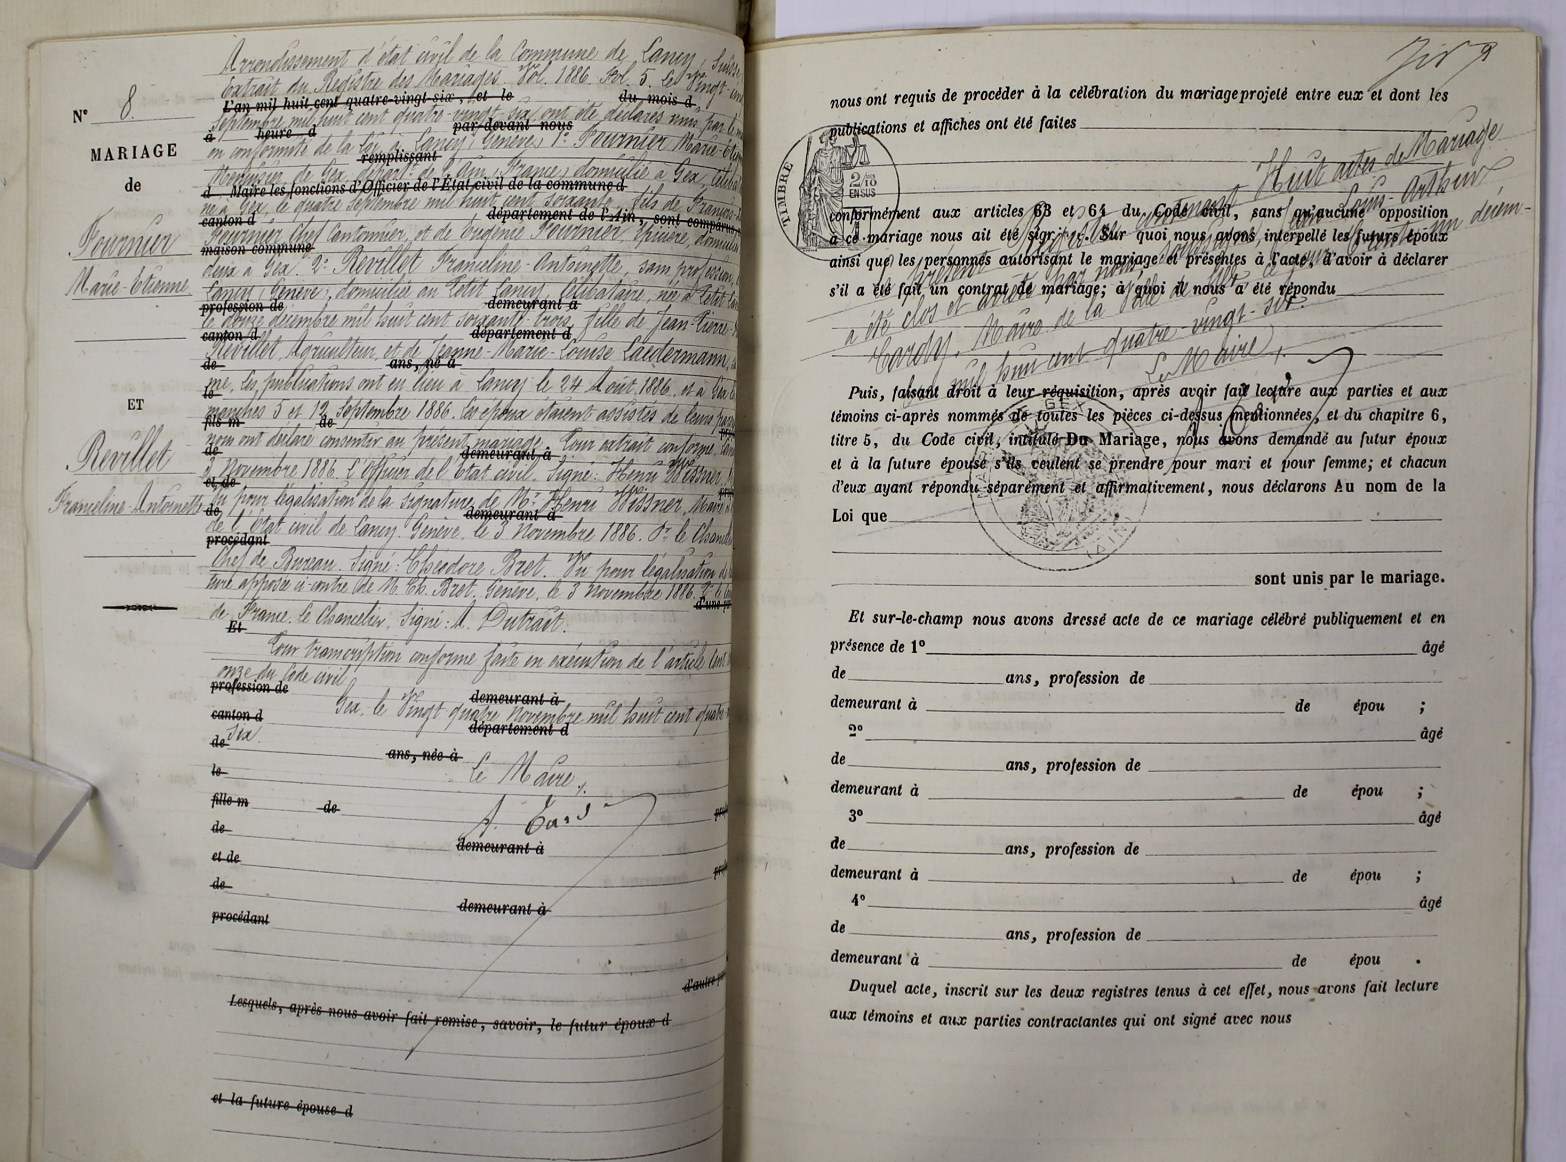 N° 8.
MARIAGE
de
Fournier
Marie-Etienne
ET
Revillet
Franceline-Antoinette
Arrondissement d'état civil de la Commune de Lancy, Suisse
Extrait du Registre des Mariages. Vol. 1886. Fol. 5. Le Vingt-un
L'an mil huit cent quatre-vingt-six, et le du mois d
Septembre mil huit cent quatre-vingt-six ont été déclarés unis par le
à heure d par-devant nous
en conformité de la loi, à Lancy (Genève) 1° Fournier Marie-Etienne
remplissant
de Gex, départ. de l'Ain (France) domicilié à Gex,
d Maire les fonctions d'Officier de l'État civil de la commune d
né à Gex, le quatre septembre mil huit cent soixante, fils de François
canton d département de l'Ain, sont comparus
Fournier Chef Cantonnier, et de Eugénie Fournier,
maison commune
deux à Gex. 2° Revillet Franceline-Antoinette, sans profession,
Lancy (Genève), domiciliée au Petit Lancy, célibataire, née à Petit
profession de demeurant à
le douze décembre mil huit cent soixante-trois, fille de Jean-Pierre
canton d département d
Revillet Agriculteur et de Jeanne-Marie-Louise Laudermann,
de ans, né à
Les publications ont eu lieu à Lancy le 24 Août 1886, et à Gex
le
manches 5 et 12 Septembre 1886. Les époux étaient assistés de leurs
fils m de
nom ont déclaré consentir au présent mariage. Pour extrait conforme.
de demeurant à
3 Novembre 1886. L'Officier de l'Etat civil. Signé: Henri Wissner,
et de
Vu pour légalisation de la signature de Mr Henri Wissner, Maire
de demeurant à
de l'Etat civil de Lancy. Genève, le 3 Novembre 1886. Pr le
procédant
Chef de Bureau. Signé: Théodore Bret. Vu pour légalisation de
ture apposée ci-contre de M. Th. Bret. Genève, le 3 Novembre 1886.
d'une
de France, le Chancelier, Signé: A. Dutrait.
Et
Pour transcription conforme faite en exécution de l'article
onze du Code civil
profession de demeurant à
Gex, le Vingt quatre Novembre mil huit cent quatre
canton d département d
six.
de ans, née à
le Le Maire,
fille m de
de demeurant à
et de
de demeurant à
procédant
d'autre
Lesquels, après nous avoir fait remise, savoir, le futur époux d
et la future épouse d
nous ont requis de procéder à la célébration du mariage projeté entre eux et dont les
publications et affiches ont été faites
TIMBRE
2/10
EN SUS
Huit actes de Mariage
Louis-Arthur
conformément aux articles 63 et 64 du Code civil, sans qu'aucune opposition
à ce mariage nous ait été signifiée. Sur quoi nous avons interpellé les futurs époux
ainsi que les personnes autorisant le mariage et présentes à l'acte, d'avoir à déclarer
s'il a été fait un contrat de mariage; à quoi il nous a été répondu
a été clos et arrêté par nous
Tardy, Maire de la Ville de Gex, ce jour trente-un décem-
mil huit cent quatre-vingt-six.
Le Maire,
Puis, faisant droit à leur réquisition, après avoir fait lecture aux parties et aux
témoins ci-après nommés de toutes les pièces ci-dessus mentionnées, et du chapitre 6,
titre 5, du Code civil, intitulé Du Mariage, nous avons demandé au futur époux
et à la future épouse s'ils veulent se prendre pour mari et pour femme; et chacun
d'eux ayant répondu séparément et affirmativement, nous déclarons Au nom de la
Loi que
GEX
(AIN)
sont unis par le mariage.
Et sur-le-champ nous avons dressé acte de ce mariage célébré publiquement et en
présence de 1° âgé
de ans, profession de
demeurant à de épou ;
2° âgé
de ans, profession de
demeurant à de épou ;
3° âgé
de ans, profession de
demeurant à de épou ;
4° âgé
de ans, profession de
demeurant à de épou .
Duquel acte, inscrit sur les deux registres tenus à cet effet, nous avons fait lecture
aux témoins et aux parties contractantes qui ont signé avec nous